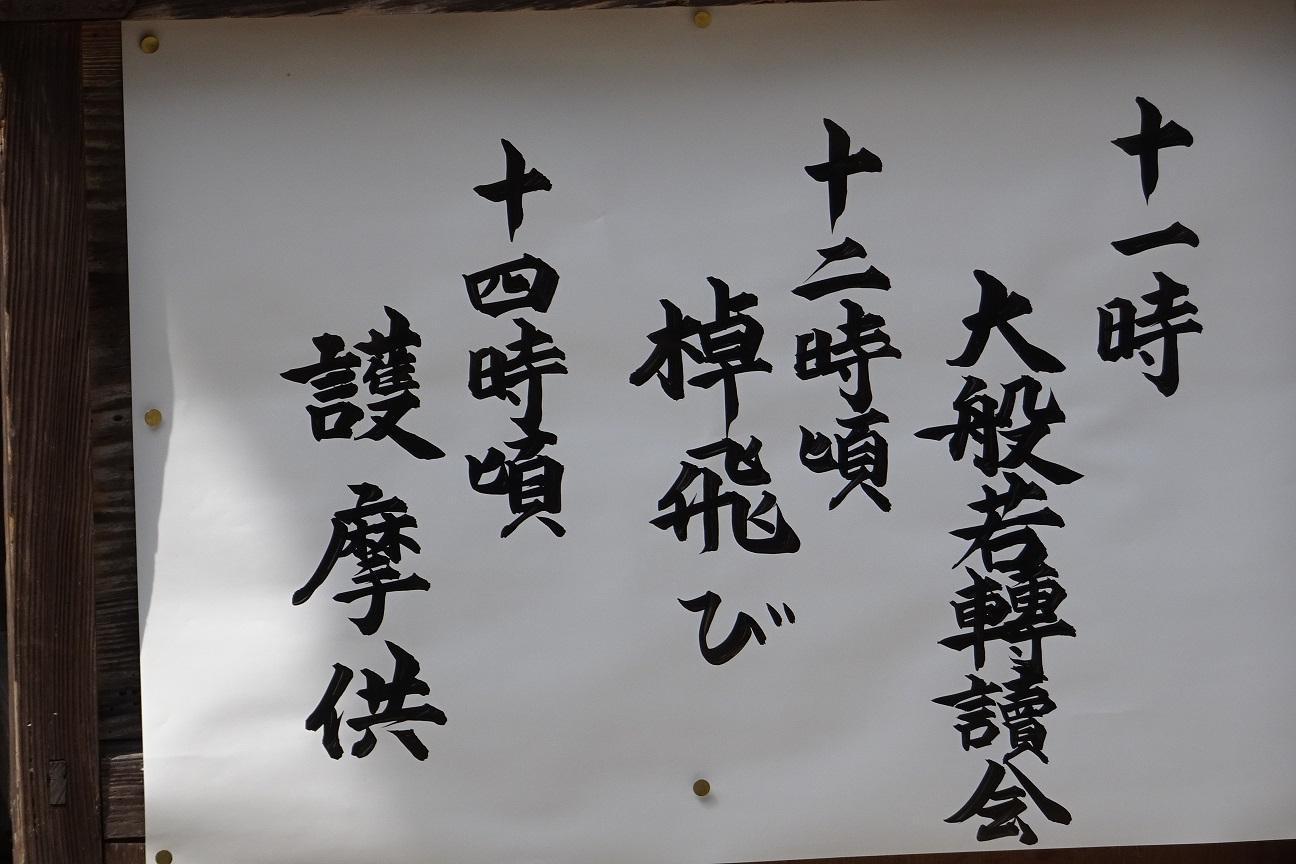 十一時
大般若轉讀会
十二時頃
棹飛び
十四時頃
護摩供